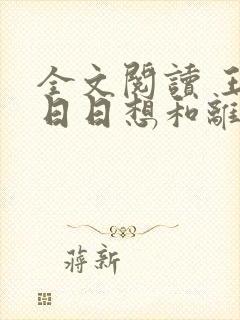 全文閱讀 王
日日想和離
蔣新